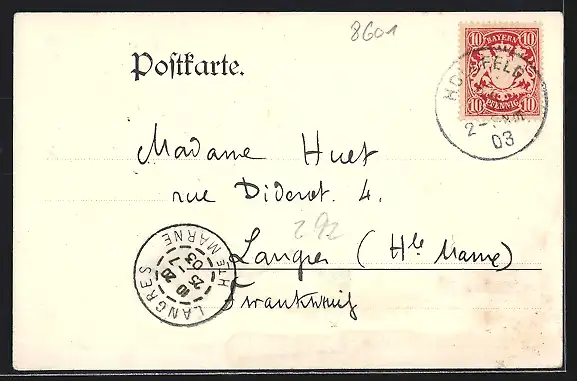 8601
Postkarte.
10 BAYERN 10
10 PFENNIG 10
FELD
03
Madame Huet
rue Diderot 4.
292
Langres (Hte Marne)
Frankreich
LANGRES
HTE MARNE
03